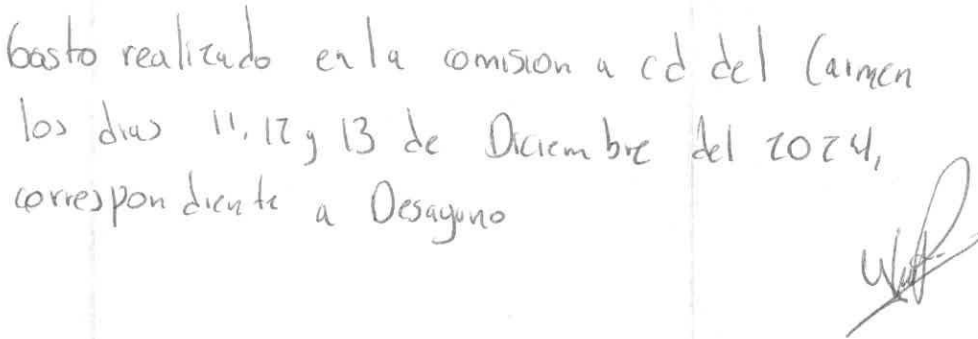 Gasto realizado en la comision a cd del Carmen
los dias 11, 12 y 13 de Diciembre del 2024,
correspondiente a Desayuno